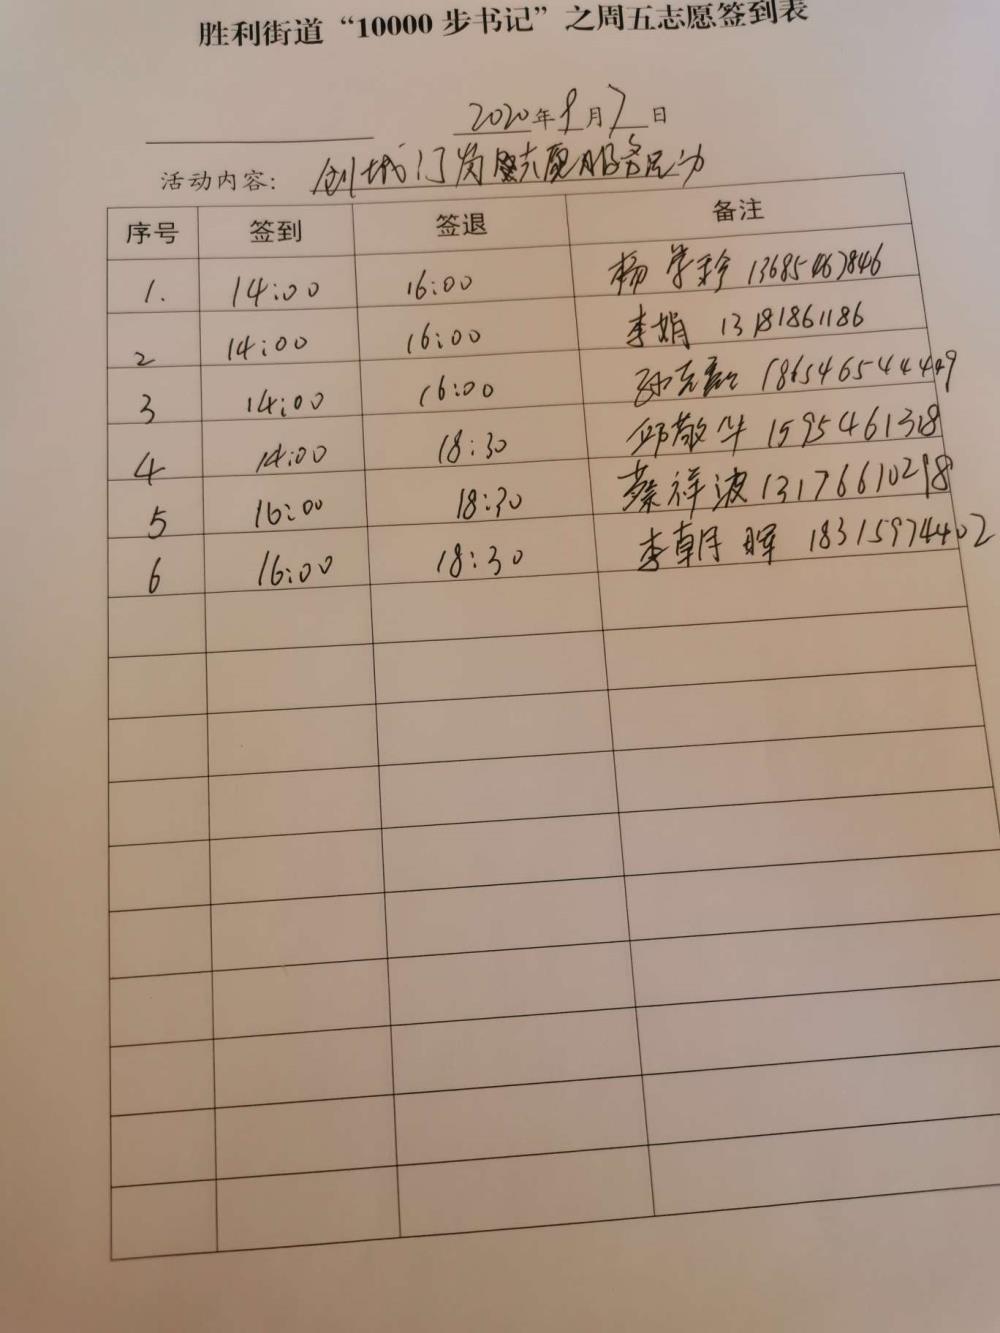 胜利街道“10000步书记”之周五志愿签到表
2020年 月7日
活动内容： 创城 志愿服务活动
序号 签到 签退 备注
1. 14:00 16:00 杨 13685467846
2 14:00 16:00 李娟 13181861186
3 14:00 16:00 孙 18654654449
4 14:00 18:30 邱敬华 15954613
5 16:00 18:30 蔡祥波 13176610298
6 16:00 18:30 李朝晖 18315974402